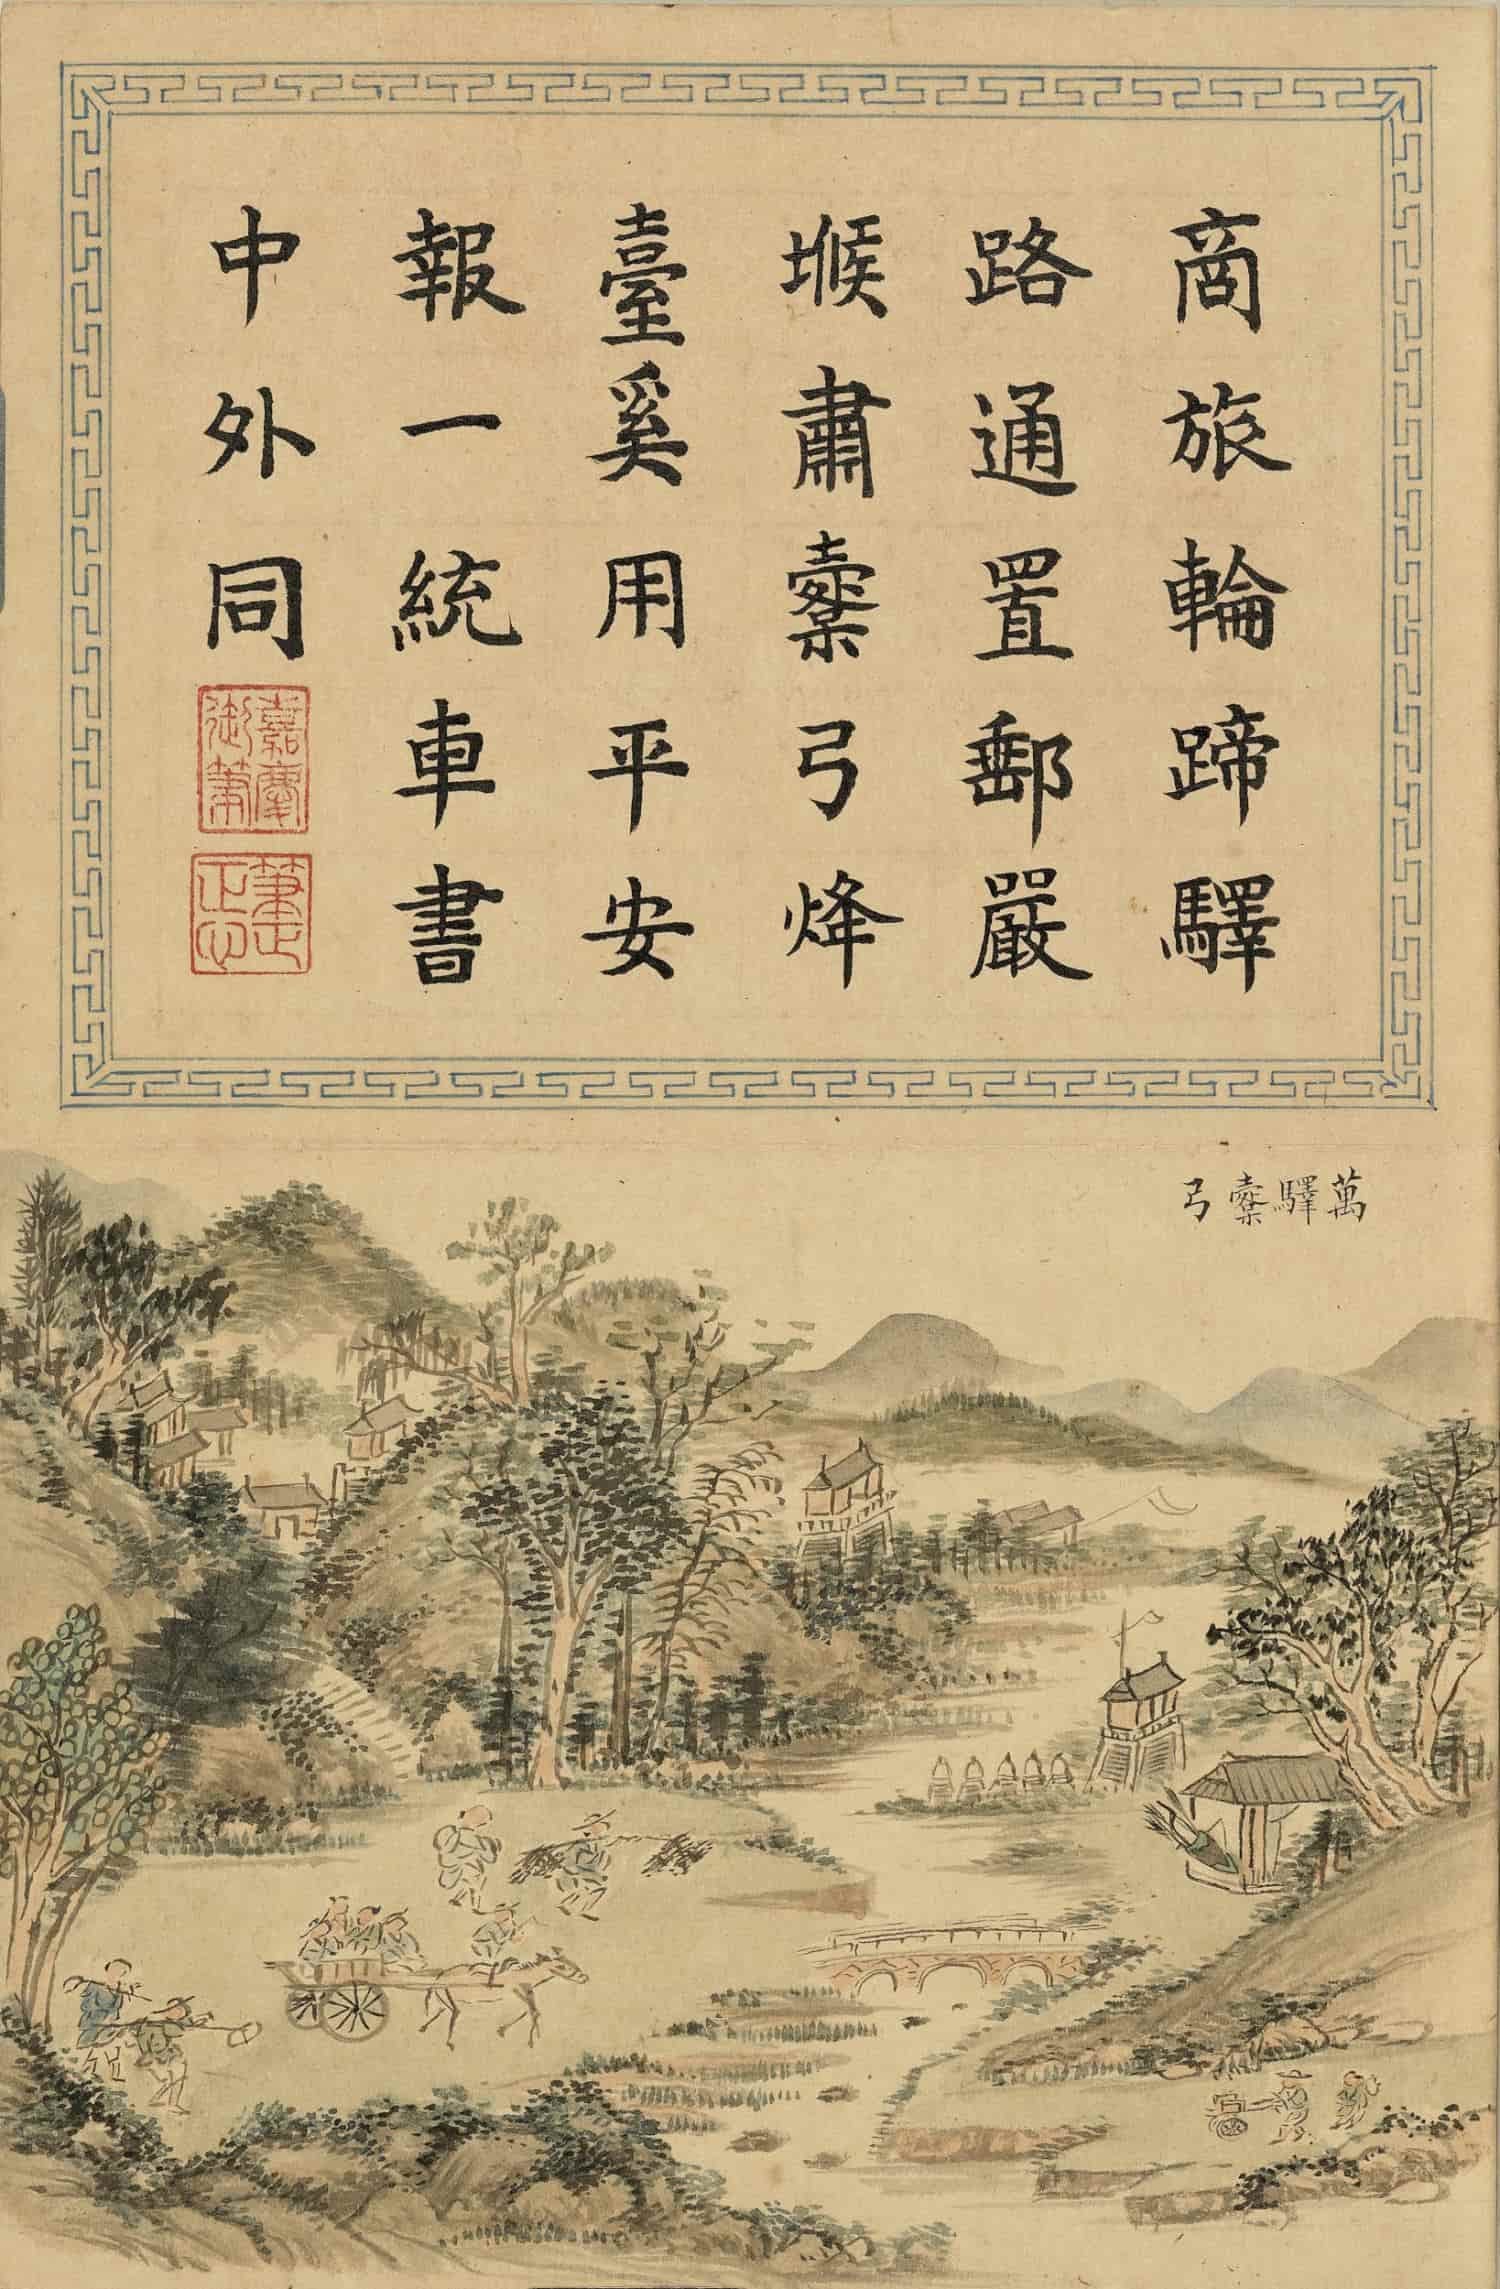 商旅輪蹄驛
路通置郵嚴
堠肅櫜弓烽
臺奚用平安
報一統車書
中外同
嘉慶
御筆
筆正
心正
萬驛櫜弓